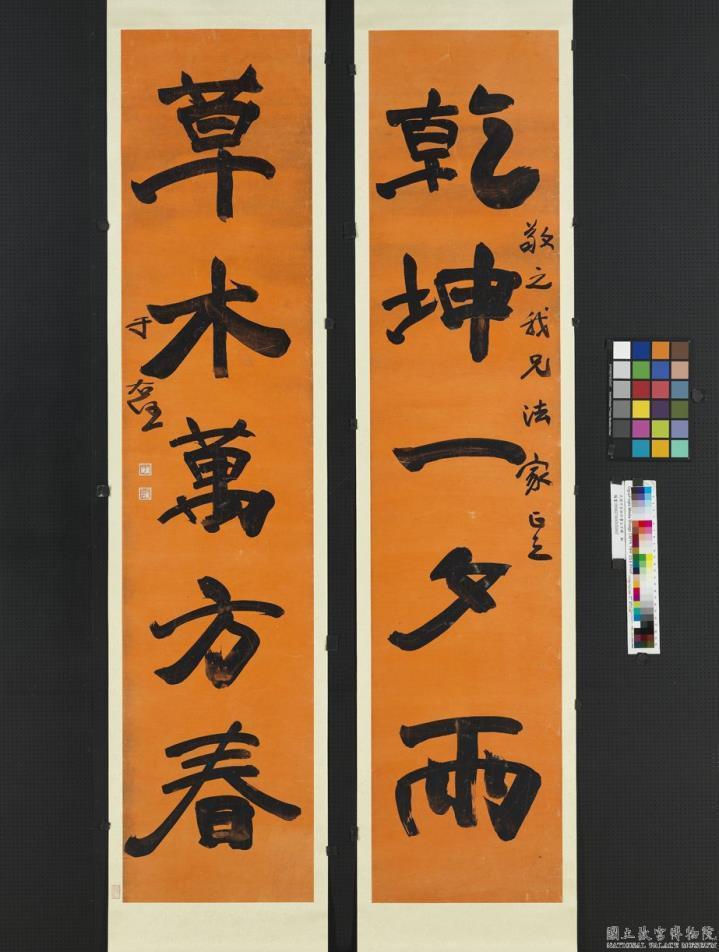 乾坤一夕雨
敬之我兄法家正之
草木萬方春
于右任
國立故宮博物院
NATIONAL PALACE MUSEUM